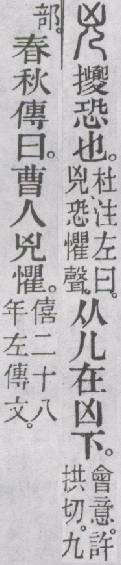 兇擾恐也。杜注左曰。兇恐懼聲。从儿在凶下。會意。許拱切。九
部。春秋傳曰。曹人兇懼。僖二十八年左傳文。